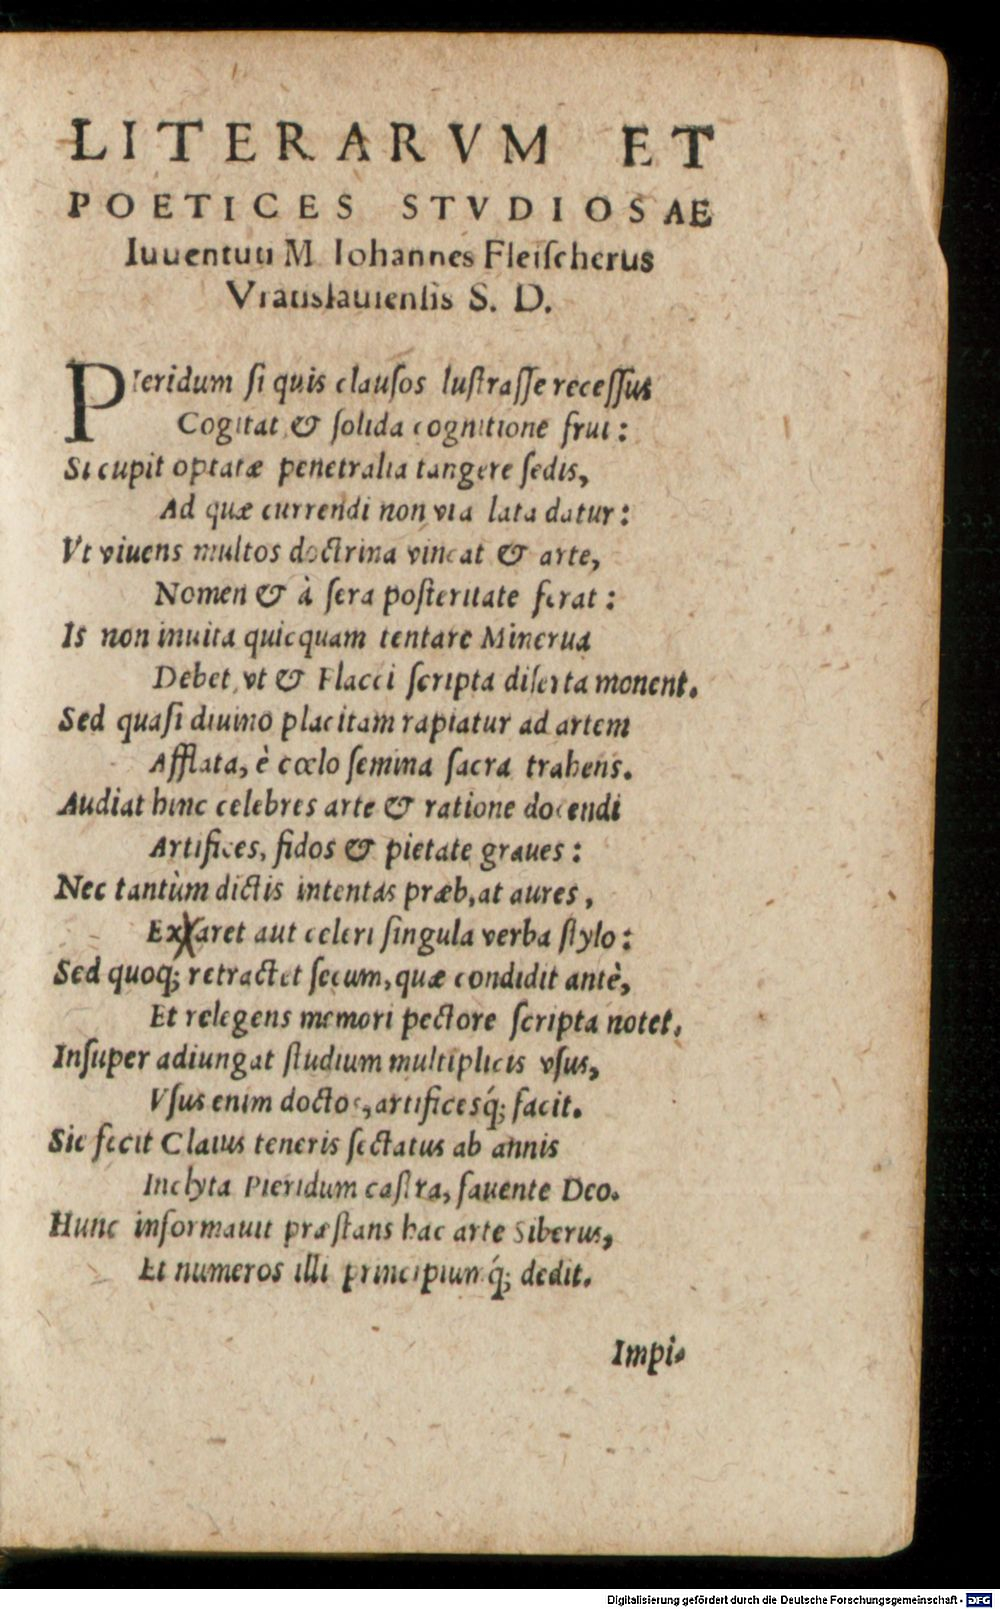 LITERARVM ET
POETICES STVDIOSAE
Iuuentuti M Iohannes Fleiſcherus
Vratislauienſis S. D.
Pieridum ſi quis clauſos luſtraſſe receſſus
Cogitat & ſolida cognitione frui:
Si cupit optatæ penetralia tangere ſedis,
Ad quæ currendi non via lata datur:
Vt viuens multos doctrina vincat & arte,
Nomen & à ſera poſteritate ferat:
Is non inuita quicquam tentare Minerua
Debet, vt & Flacci ſcripta diſerta monent.
Sed quaſi diuino placitam rapiatur ad artem
Afflata, è cœlo ſemina ſacra trahens.
Audiat hinc celebres arte & ratione docendi
Artifices, fidos & pietate graues:
Nec tantùm dictis intentas præb,at aures,
Exxaret aut celeri ſingula verba ſtylo:
Sed quoq; retractet ſecum, quæ condidit antè,
Et relegens memori pectore ſcripta notet.
Inſuper adiungat ſtudium multiplicis vſus,
Vſus enim doctos, artificesq́; facit.
Sic fecit Claius teneris ſectatus ab annis
Inclyta Pieridum caſtra, fauente Deo.
Hunc informauit præſtans hac arte Siberus,
Et numeros illi principiumq́; dedit.
Impi-
Digitalisierung gefördert durch die Deutsche Forschungsgemeinschaft - DFG